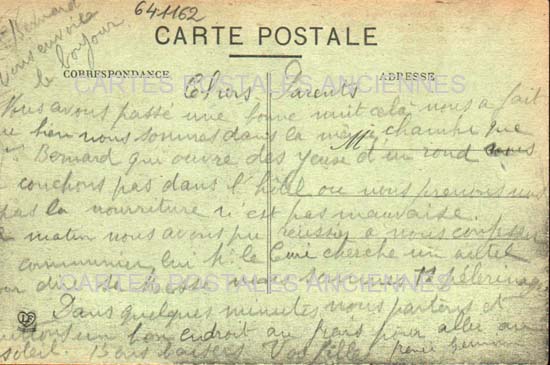 641162
Bernard
vous envoie
le bonjour
CARTE POSTALE
CORRESPONDANCE
ADRESSE
CARTES POSTALES ANCIENNES
Chers Parents
Nous avons passé une bonne nuit cela nous a fait
bien nous sommes dans la même chambre que
Bernard qui ouvre des yeux d'un rond nous
couchons pas dans l'hôtel ou nous prenons nos
pas la nourriture n'est pas mauvaise.
matin nous avons pu réussir a nous confesser
communier lui hi le Curé cherche un autel
dire sa Messe nous sommes pélerinages
CARTES POSTALES ANCIENNES
Dans quelques minutes nous partons et
un bon endroit au frais pour aller au
soleil. Bons baisers Vos filles